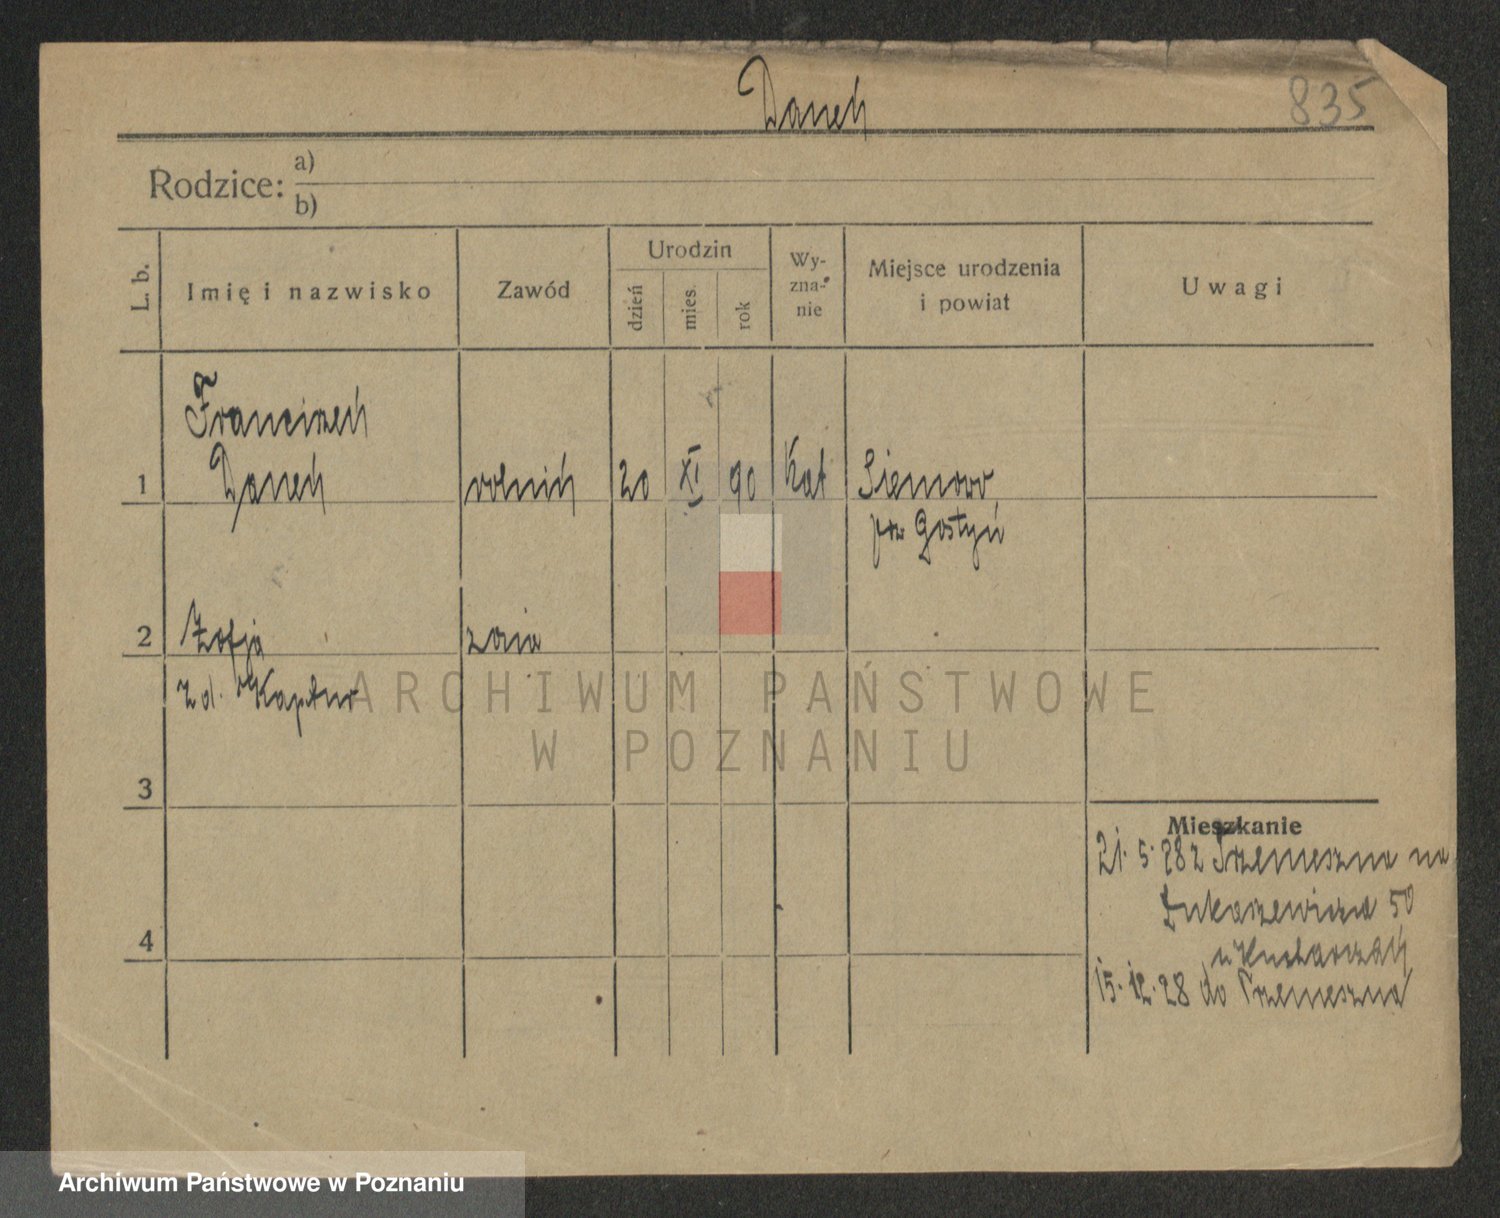 Danek
835
Rodzice: a)
b)
L. b.
Imię i nazwisko
Zawód
Urodzin
dzień
mies.
rok
Wy-
zna-
nie
Miejsce urodzenia
i powiat
Uwagi
Franciszek
1 Danek rolnik 20 XI 90 Kat Siemowo
pw Gostyń
2 Zofja żona
z d. Kaptur
3
4
Mieszkanie
21.5.28 z Trzemeszna na
Łukaszewicza 50
u Kucharzak
15.12.28 do Trzemeszna
ARCHIWUM PAŃSTWOWE
W POZNANIU
Archiwum Państwowe w Poznaniu